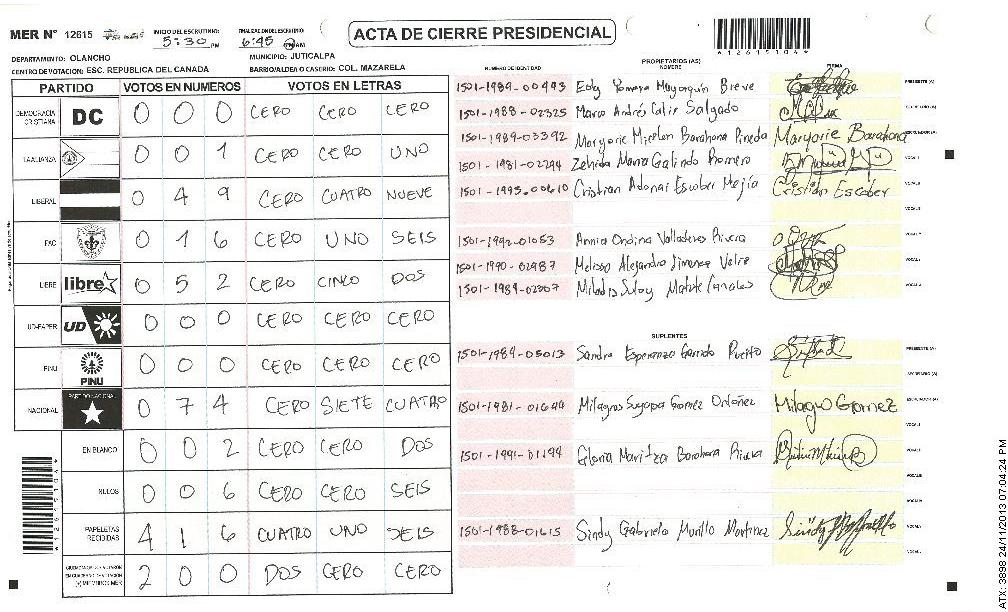 MER N° 12615 INICIO DEL ESCRUTINIO: 5:30 PM FINALIZACION DEL ESCRUTINIO: 6:45 PM/AM
ACTA DE CIERRE PRESIDENCIAL
A126151049
DEPARTAMENTO: OLANCHO MUNICIPIO: JUTICALPA
CENTRO DE VOTACION: ESC. REPUBLICA DEL CANADA BARRIO/ALDEA O CASERIO: COL. MAZARELA
PARTIDO VOTOS EN NUMEROS VOTOS EN LETRAS
DEMOCRACIA CRISTIANA DC 0 0 0 CERO CERO CERO
LA ALIANZA 0 0 1 CERO CERO UNO
LIBERAL 0 4 9 CERO CUATRO NUEVE
PAC 0 1 6 CERO UNO SEIS
LIBRE libre 0 5 2 CERO CINCO DOS
UD-FAPER UD 0 0 0 CERO CERO CERO
PINU PINU 0 0 0 CERO CERO CERO
NACIONAL PARTIDO NACIONAL 0 7 4 CERO SIETE CUATRO
EN BLANCO 0 0 2 CERO CERO DOS
NULOS 0 0 6 CERO CERO SEIS
PAPELETAS RECIBIDAS 4 1 6 CUATRO UNO SEIS
2 0 0 DOS CERO CERO
NUMERO DE IDENTIDAD PROPIETARIOS (AS) NOMBRE FIRMA
1501-1984-00493 Edby Yomara Mayorquin Breve PRESIDENTE (A)
1501-1988-02325 Marco Andrés Calix Salgado SECRETARIO (A)
1501-1989-03392 Maryorie Micelan Barahona Pineda Maryorie Barahona ESCRUTADOR (A)
1501-1981-02294 Zehida Maria Galindo Romero VOCAL I
1501-1993-00610 Cristian Adonai Escober Mejia Cristian Escober VOCAL II
1501-1992-01053 Annia Ondina Valladares Rivera
1501-1990-02987 Melissa Alejandra Jimenez
1501-1989-02807 Matute Canales
SUPLENTES
1501-1984-05013 Sandra Esperanza Garrido PRESIDENTE (A)
SECRETARIO (A)
1501-1981-01644 Milagros Suyapa Gomez Ordoñez Milagro Gomez ESCRUTADOR (A)
1501-1991-01194 Gloria Maritza Barahona Rivera
1501-1988-01615 Sindy Gabriela Murillo Martinez
ATX: 3898 24/11/2013 07:04:24 PM